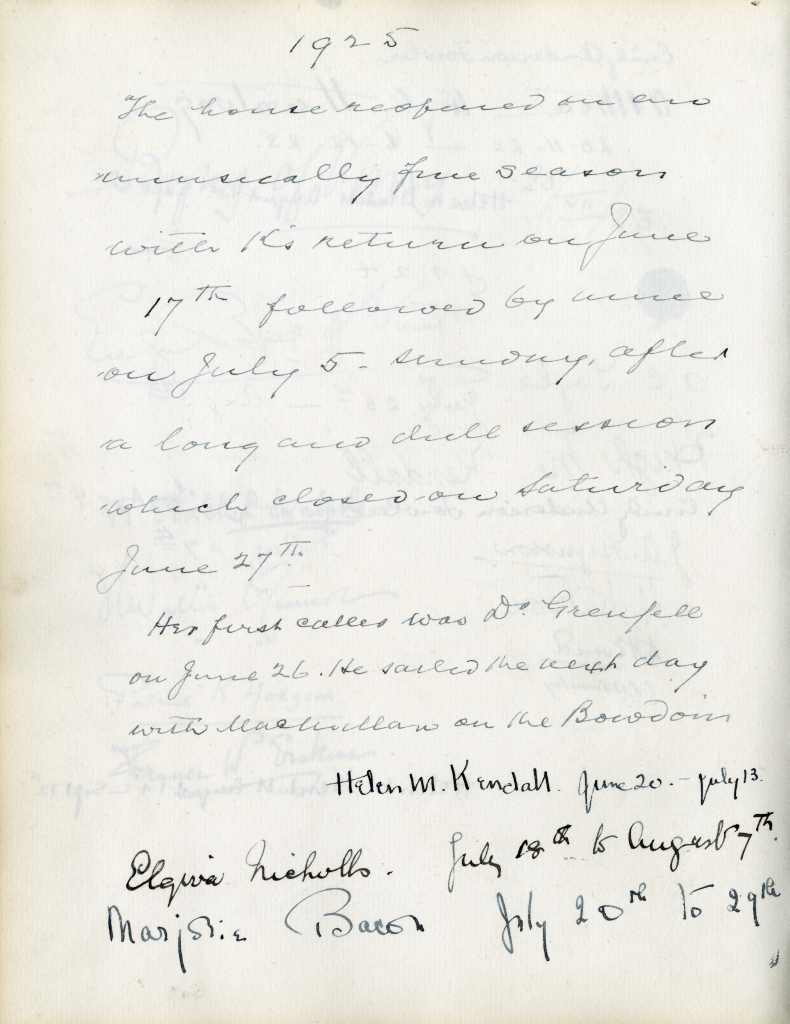 1925
The house reopened on an
unusually fine season
with K's return on June
17th followed by mine
on July 5 - Sunday, after
a long and dull session
which closed on Saturday
June 27th.
Her first caller was Dr Grenfell
on June 26. He sailed the next day
with MacMillan on the Bowdoin
Helen M. Kendall. June 20. - July 13.
Elgiva Nicholls. July 18th to August 7th.
Marjorie Bacon July 20th to 29th